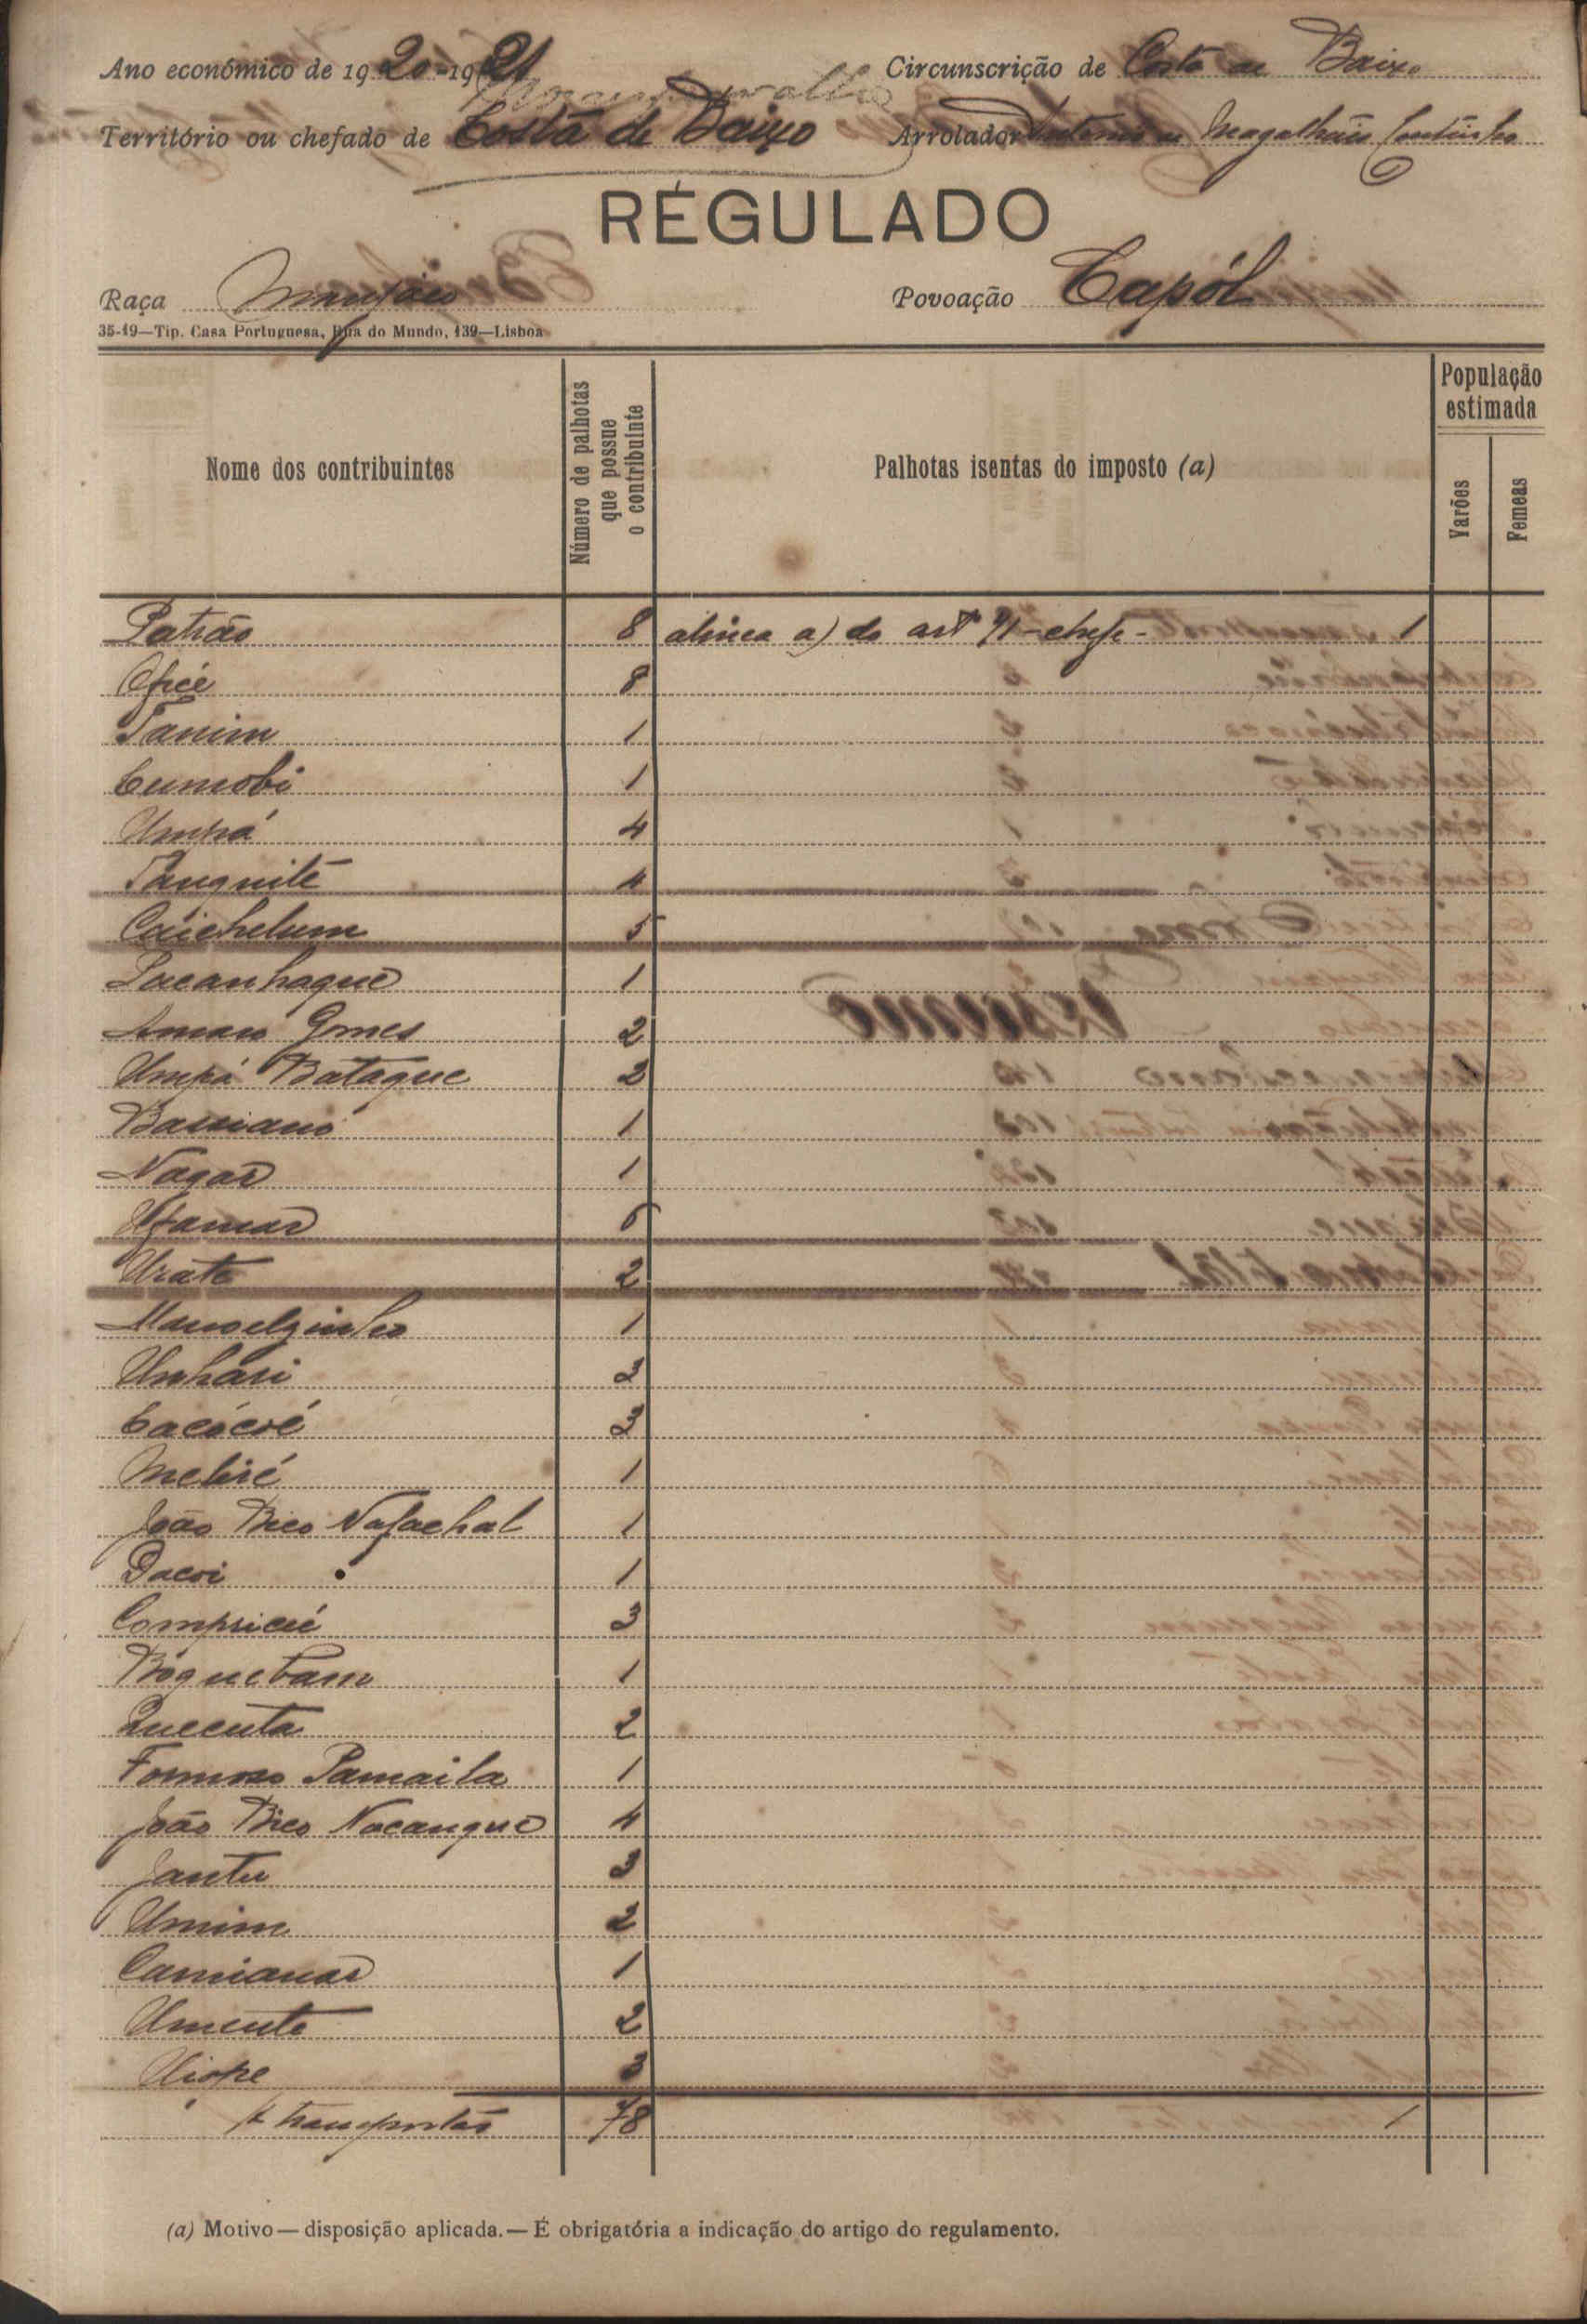 Ano económico de 1920-1921 Circunscrição de Costa de Baixo
Território ou chefado de Costa de Baixo Arrolador Antonio de Magalhães Coutinho
REGULADO
Raça Manjaco Povoação Capól
35-19—Tip. Casa Portuguesa, Rua do Mundo, 139—Lisboa
Nome dos contribuintes
Número de palhotas que possue o contribuinte
Palhotas isentas do imposto (a)
População estimada
Varões
Femeas
Patrão 8 alinea a) do artº 71 - chefe - 1
Ofice 8
Tanim 1
Cumobi 1
Umpá 4
Tanquite 4
Caichelum 5
Lacanhaque 1
Amaro Gomes 2
Umpá Bataque 2
Bassiano 1
Nagar 1
Ufamar 6
Urate 2
Manoelzinho 1
Unhari 2
Cacócoé 3
Meliré 1
João Bico Nafachal 1
Dacoi 1
Compricié 3
Bóquebam 1
Quecuta 2
Formoso Pamaila 1
João Bico Nacanque 4
Jantu 3
Umim 2
Camianar 1
Umente 2
Uiope 3
A transportar 78 1
(a) Motivo — disposição aplicada. — É obrigatória a indicação do artigo do regulamento.